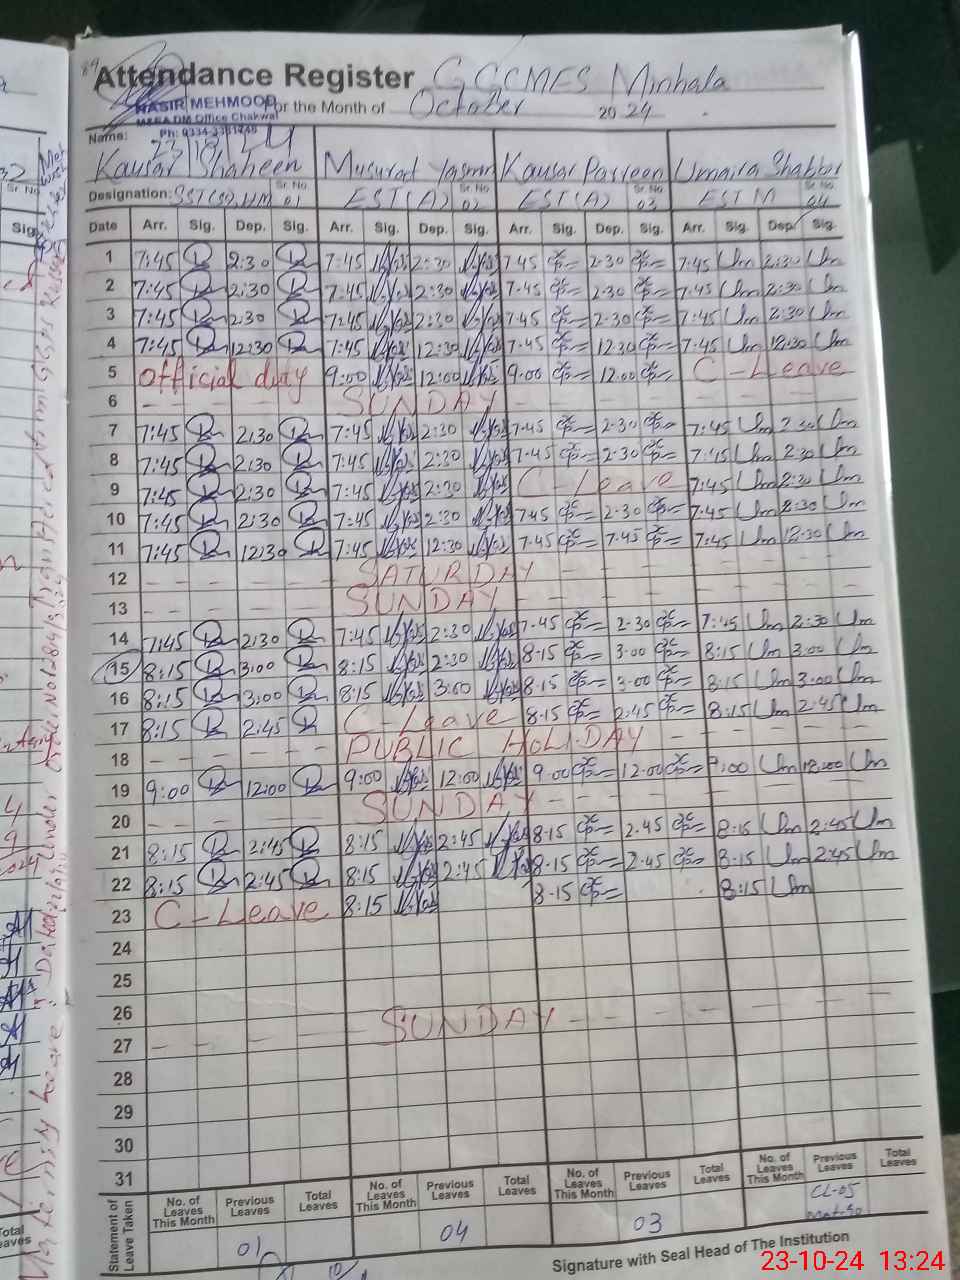 84
Attendance Register GGCMES Minhala
NASIR MEHMOOD For the Month of October 2024
M&EA DM Office Chakwal
Name: Kausar Shaheen Musurat Yasmin Kausar Parveen Umaira Shabbir
23/10/24
Designation: SST(Sc)HM Sr. No 01 EST(A) Sr. No 02 EST(A) Sr. No 03 EST M Sr. No 04
Date Arr. Sig. Dep. Sig. Arr. Sig. Dep. Sig. Arr. Sig. Dep. Sig. Arr. Sig. Dep. Sig.
1 7:45 2:30 7:45 2:30 7-45 2-30 7:45 Um 2:30 Um
2 7:45 2:30 7:45 2:30 7-45 2-30 7:45 Um 2:30 Um
3 7:45 2:30 7:45 2:30 7-45 2-30 7:45 Um 2:30 Um
4 7:45 12:30 7:45 12:30 7-45 12-30 7:45 Um 12:30 Um
5 Official duty 9:00 12:00 9-00 12-00 C-Leave
6 SUNDAY
7 7:45 2:30 7:45 2:30 7-45 2-30 7:45 Um 2:30 Um
8 7:45 2:30 7:45 2:30 7-45 2-30 7:45 Um 2:30 Um
9 7:45 2:30 7:45 2:30 C-Leave 7:45 Um 2:30 Um
10 7:45 2:30 7:45 2:30 7-45 2-30 7:45 Um 2:30 Um
11 7:45 12:30 7:45 12:30 7-45 7-45 7:45 Um 12:30 Um
12 SATURDAY
13 SUNDAY
14 7:45 2:30 7:45 2:30 7-45 2-30 7:45 Um 2:30 Um
15 8:15 3:00 8:15 2:30 8-15 3-00 8:15 Um 3:00 Um
16 8:15 3:00 8:15 3:00 8-15 3-00 8:15 Um 3:00 Um
17 8:15 2:45 C-Leave 8-15 2-45 8:15 Um 2:45 Um
18 PUBLIC HOLIDAY
19 9:00 12:00 9:00 12:00 9-00 12-00 9:00 Um 12:00 Um
20 SUNDAY
21 8:15 2:45 8:15 2:45 8-15 2-45 8:15 Um 2:45 Um
22 8:15 2:45 8:15 2:45 8-15 2-45 8:15 Um 2:45 Um
23 C-Leave 8:15 8-15 8:15 Um
24
25
26
27 SUNDAY
28
29
30
31
Statement of Leave Taken
No. of Leaves This Month Previous Leaves Total Leaves No. of Leaves This Month Previous Leaves Total Leaves No. of Leaves This Month Previous Leaves Total Leaves No. of Leaves This Month Previous Leaves Total Leaves
01 04 03 CL-05
Mat-90
Signature with Seal Head of The Institution
23-10-24 13:24